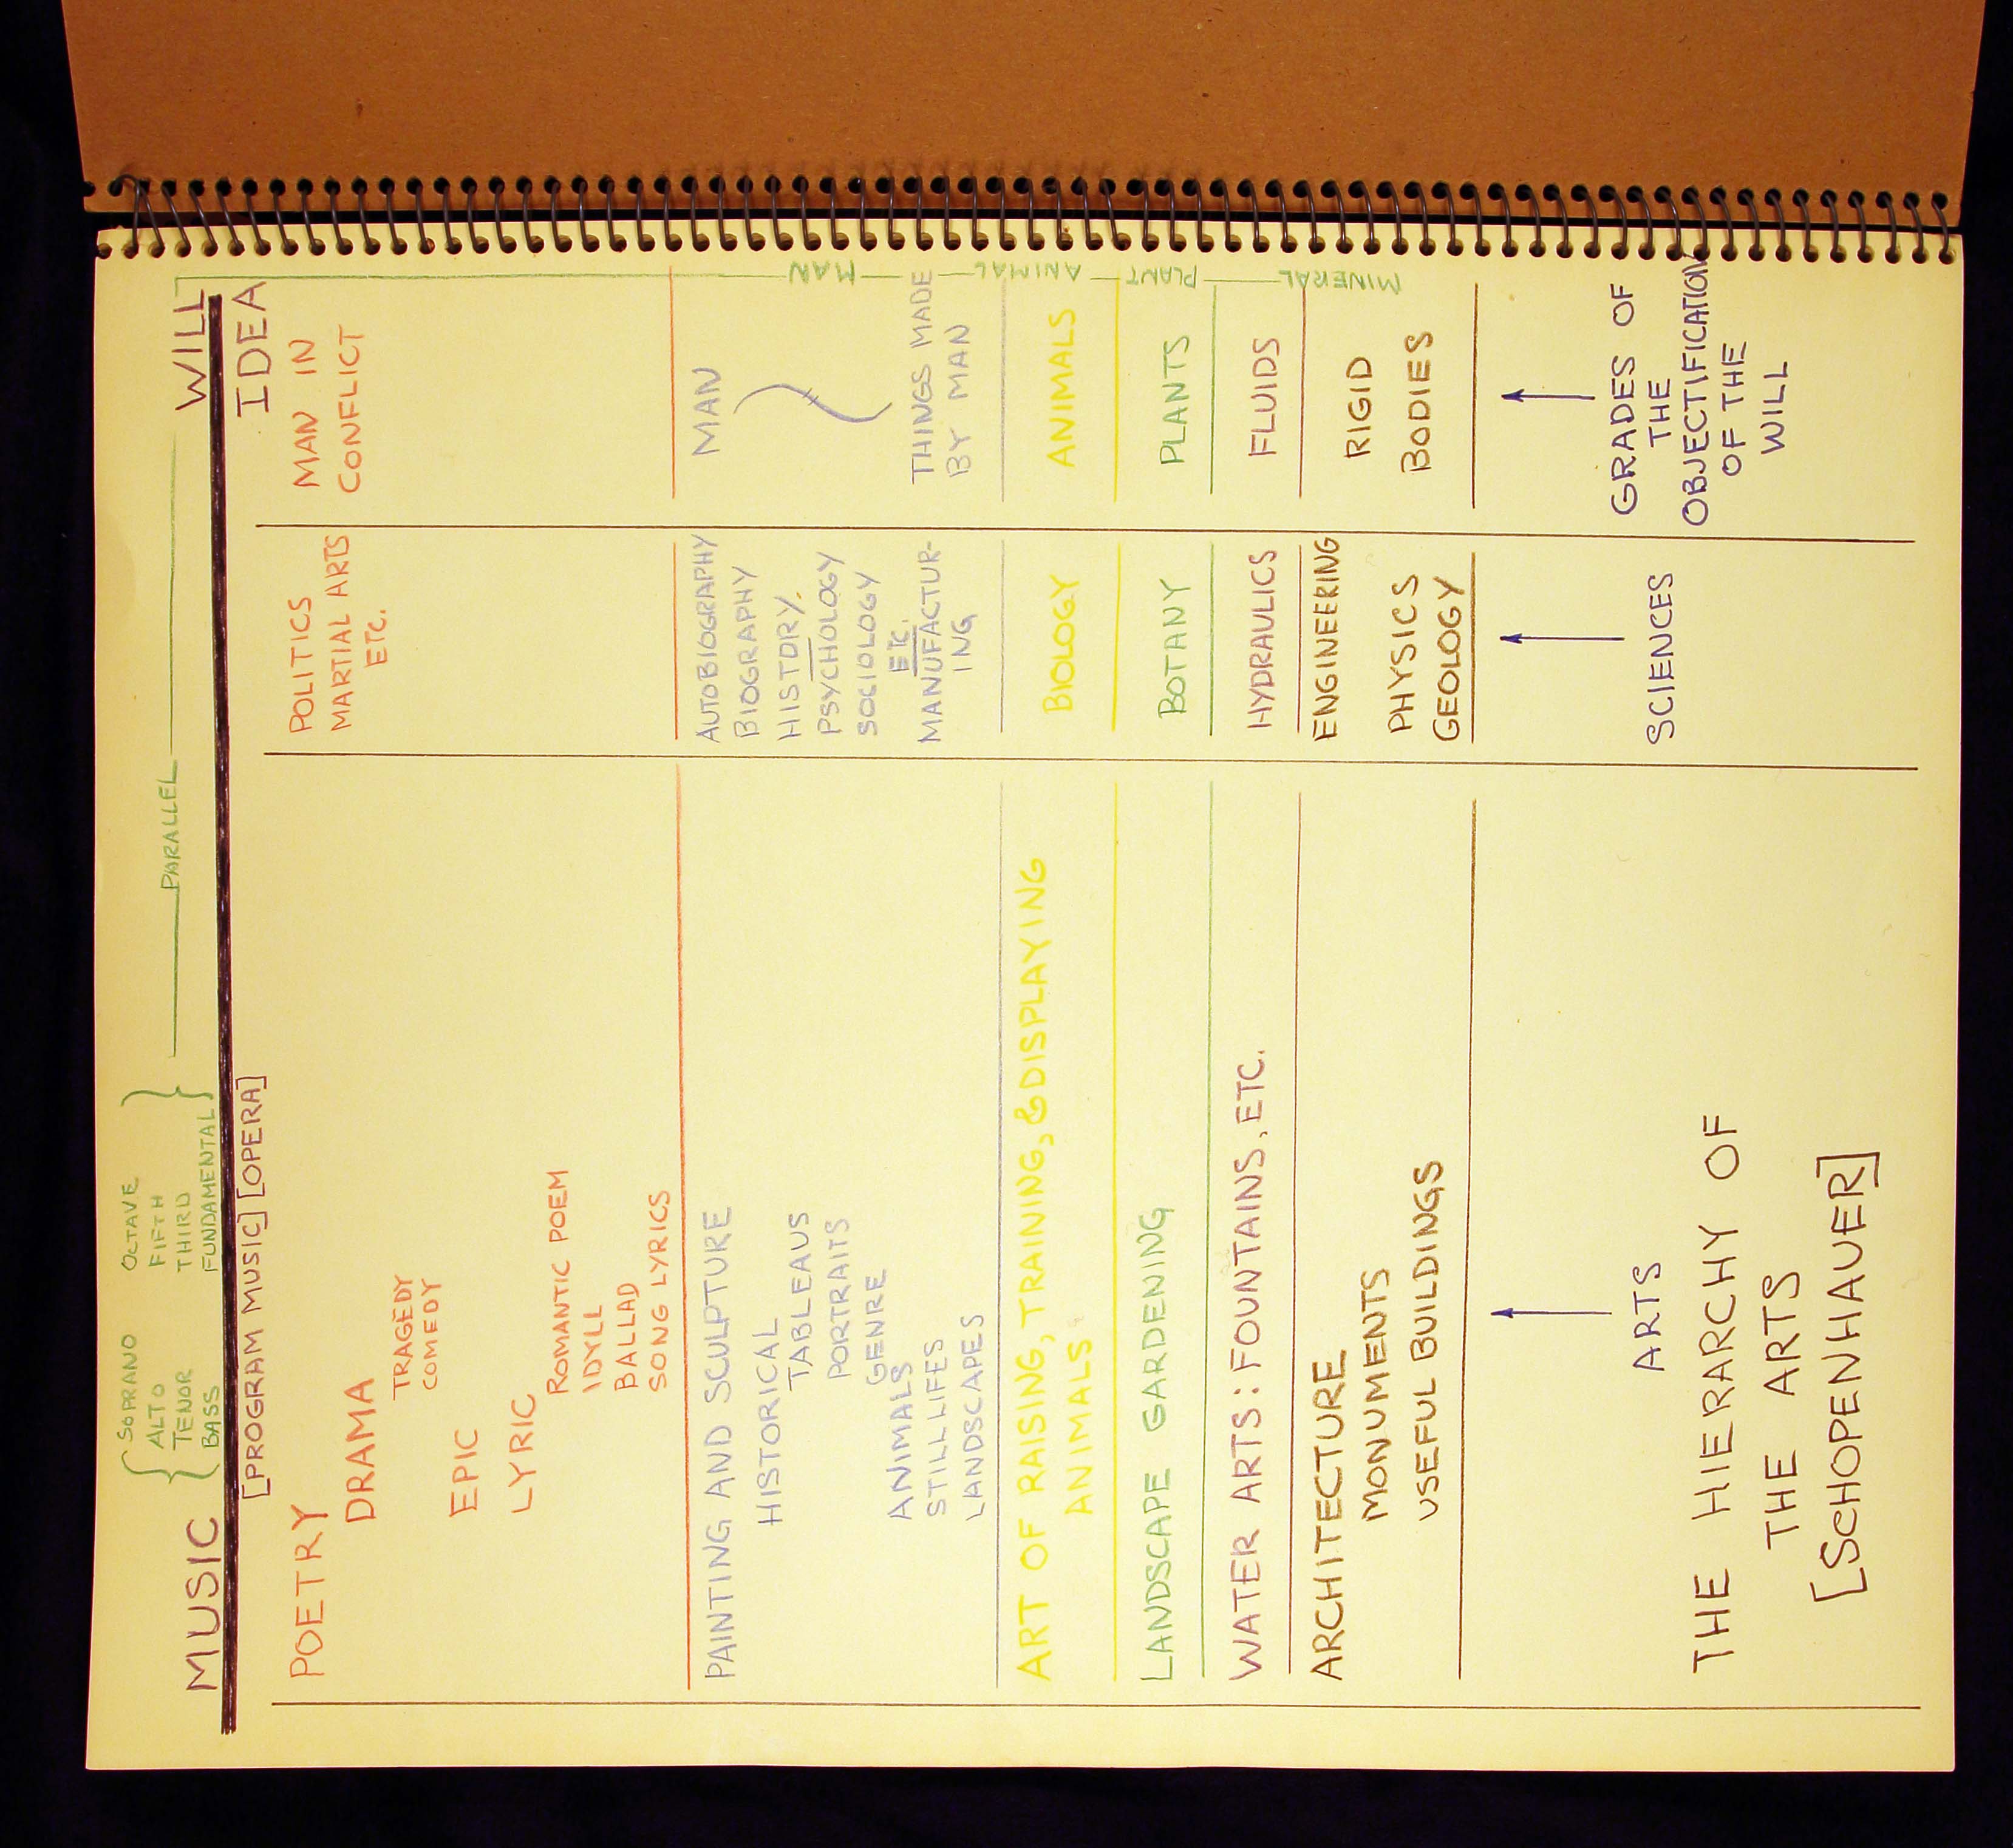 { SOPRANO OCTAVE }
ALTO FIFTH
TENOR THIRD
BASS FUNDAMENTAL
MUSIC
PARALLEL
WILL
[PROGRAM MUSIC] [OPERA]
IDEA
POETRY
DRAMA
TRAGEDY
COMEDY
EPIC
LYRIC
ROMANTIC POEM
IDYLL
BALLAD
SONG LYRICS
POLITICS
MARTIAL ARTS
ETC.
MAN IN
CONFLICT
PAINTING AND SCULPTURE
HISTORICAL
TABLEAUS
PORTRAITS
GENRE
ANIMALS
STILL LIFES
LANDSCAPES
AUTOBIOGRAPHY
BIOGRAPHY
HISTORY.
PSYCHOLOGY
SOCIOLOGY
ETC.
MANUFACTUR-
ING
MAN
THINGS MADE
BY MAN
MAN
ART OF RAISING, TRAINING, & DISPLAYING
ANIMALS
BIOLOGY
ANIMALS
ANIMAL
LANDSCAPE GARDENING
BOTANY
PLANTS
PLANT
WATER ARTS: FOUNTAINS, ETC.
HYDRAULICS
FLUIDS
MINERAL
ARCHITECTURE
MONUMENTS
USEFUL BUILDINGS
ENGINEERING
PHYSICS
GEOLOGY
RIGID
BODIES
ARTS
SCIENCES
GRADES OF
THE
OBJECTIFICATION
OF THE
WILL
THE HIERARCHY OF
THE ARTS
[SCHOPENHAUER]